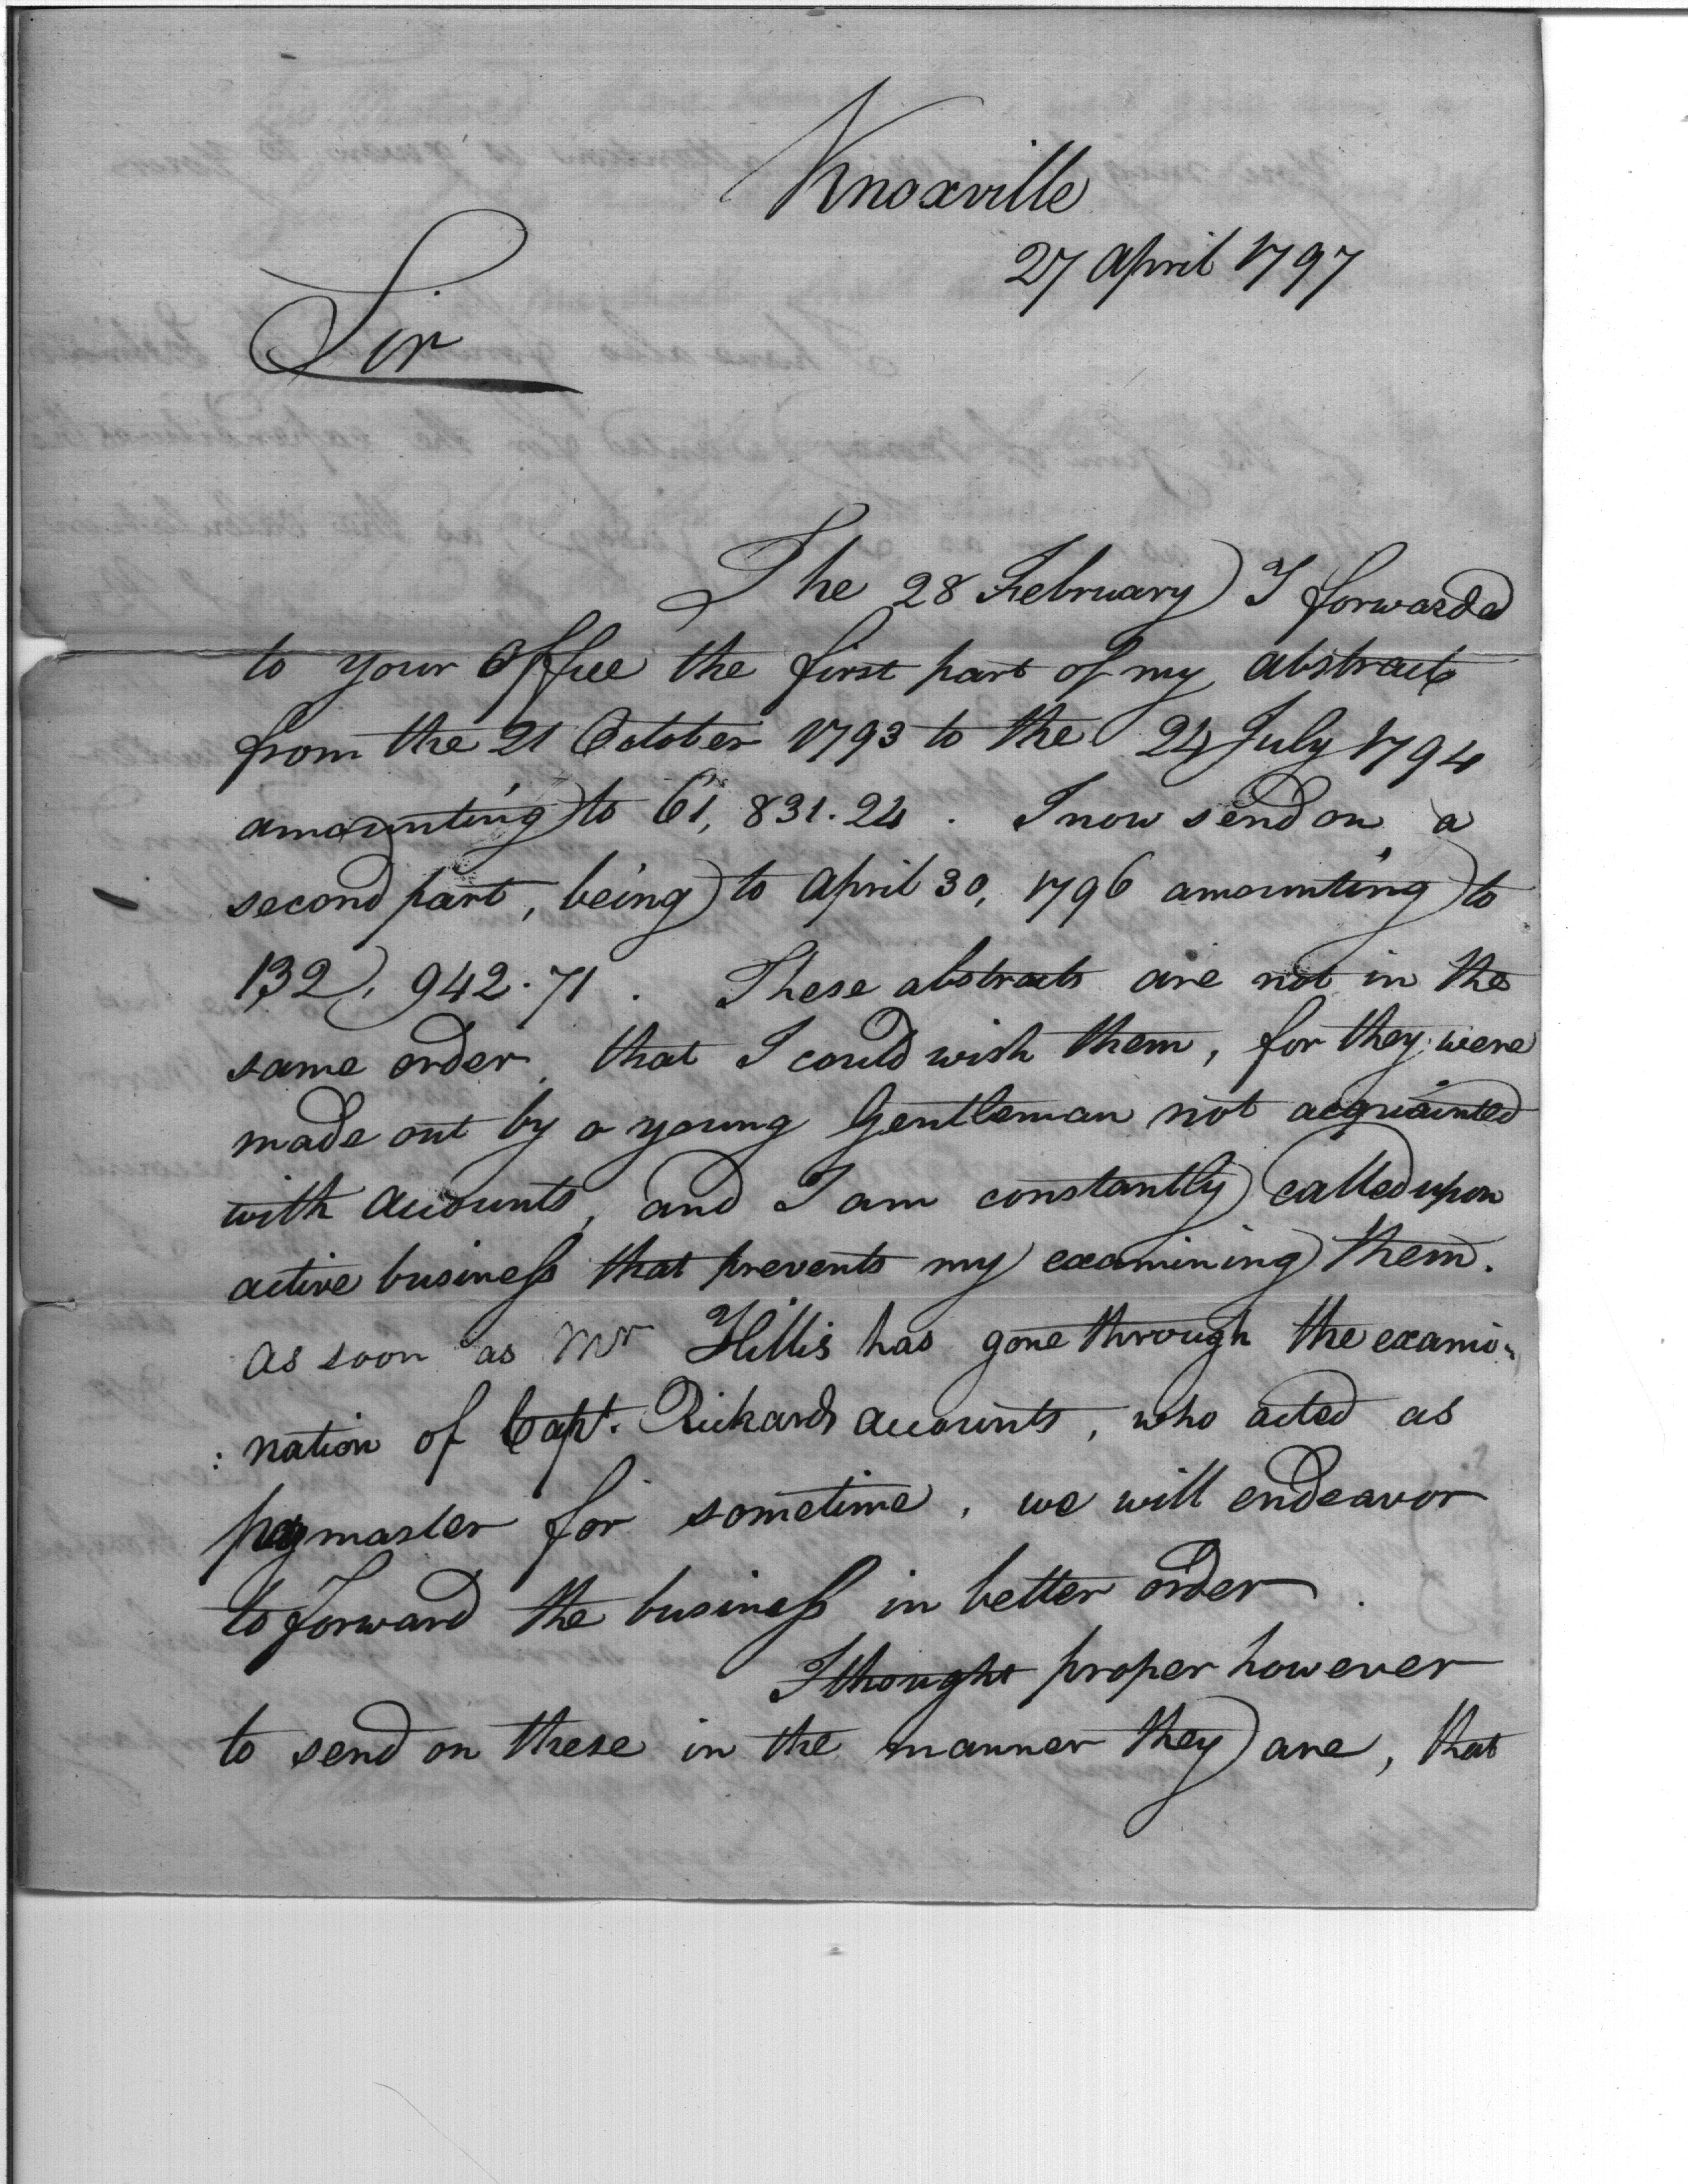 Knoxville
27 April 1797
Sir
The 28 February I forwarded
to your Office the first part of my abstracts
from the 21 October 1793 to the 24 July 1794
amounting to 61,831.24. I now send on a
second part, being to April 30, 1796 amounting to
132,942.71. These abstracts are not in the
same order that I could wish them, for they were
made out by a young Gentleman not acquainted
with accounts, and I am constantly called upon
active business that prevents my examining them.
As soon as Mr Hillis has gone through the exami-
:nation of Capt. Rickards accounts, who acted as
paymaster for sometime, we will endeavor
to forward the business in better order.
I thought proper however
to send on these in the manner they are, that